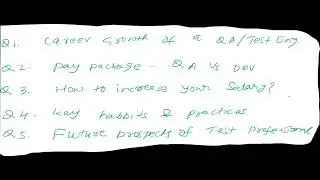 Q1. Career Growth of a QA/Test Eng.
Q2. Pay package - QA Vs Dev
Q3. How to increase your Salary?
Q4. Key habbits & practices
Q5. Future prospects of Test Professional